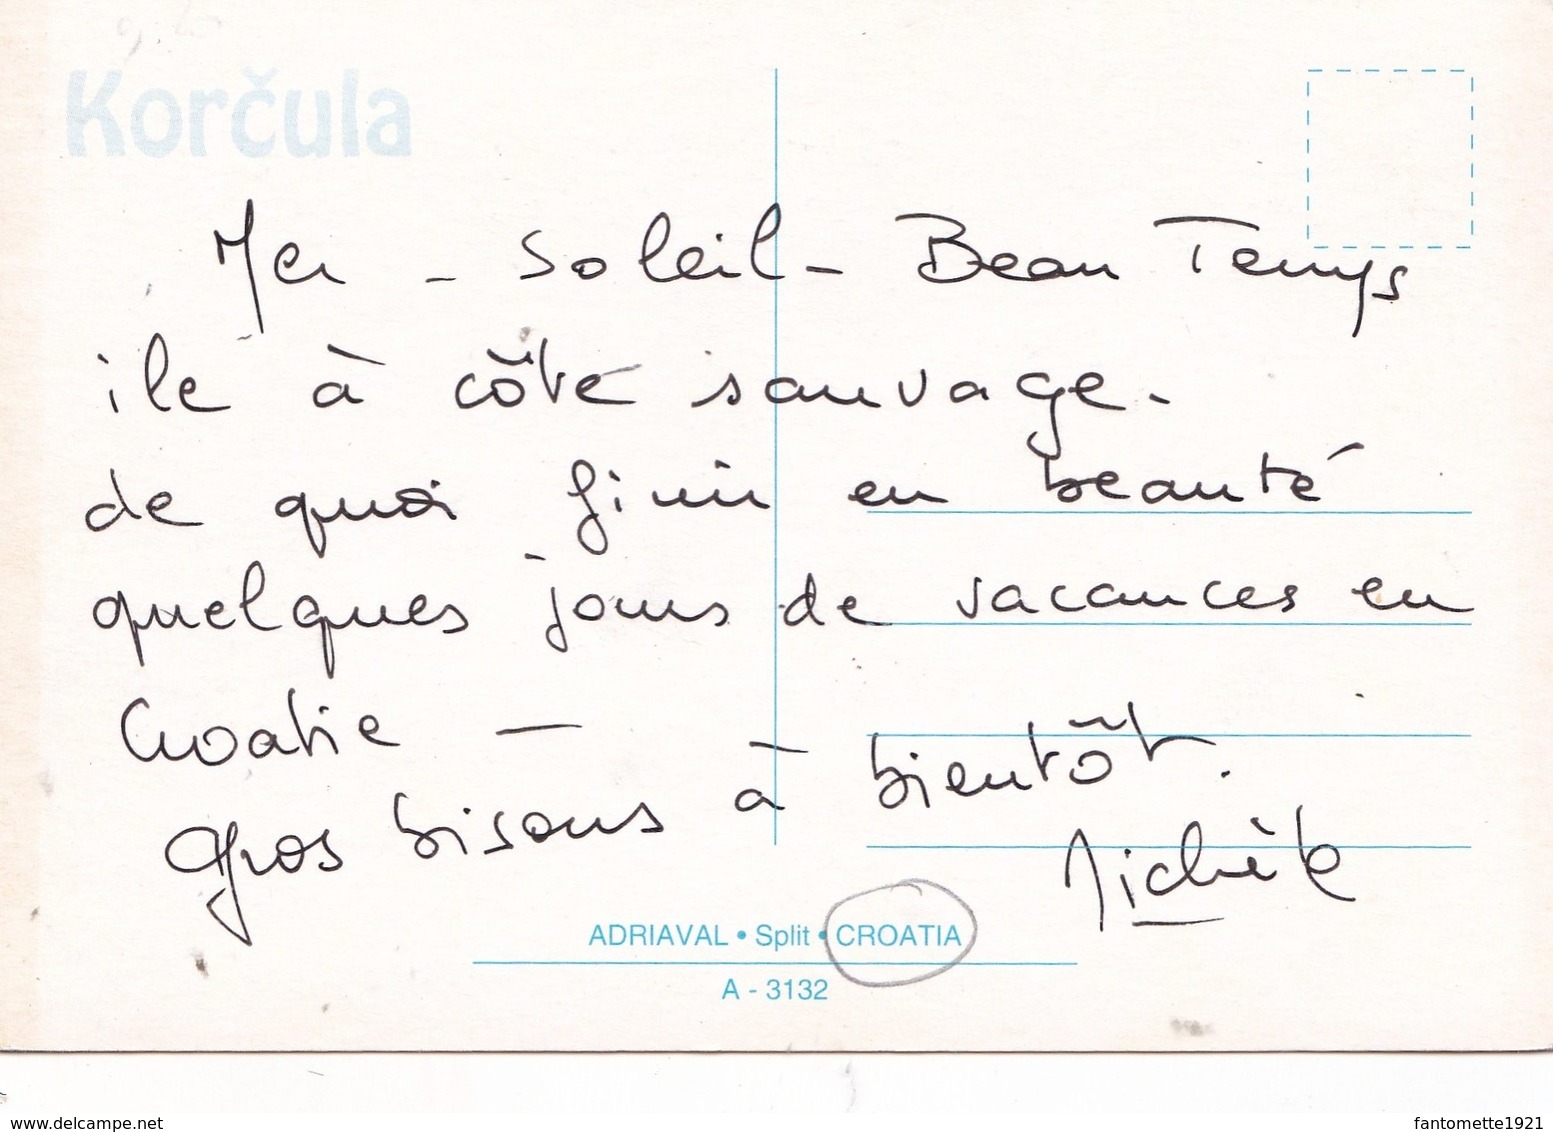 Korčula
Mer - Soleil - Beau Temps
ile à côté sauvage.
de quoi finir en beauté
quelques jours de vacances en
Croatie —
à bientôt.
Gros bisous
Michèle
ADRIAVAL • Split • CROATIA
A - 3132
www.delcampe.net
fantomette1921